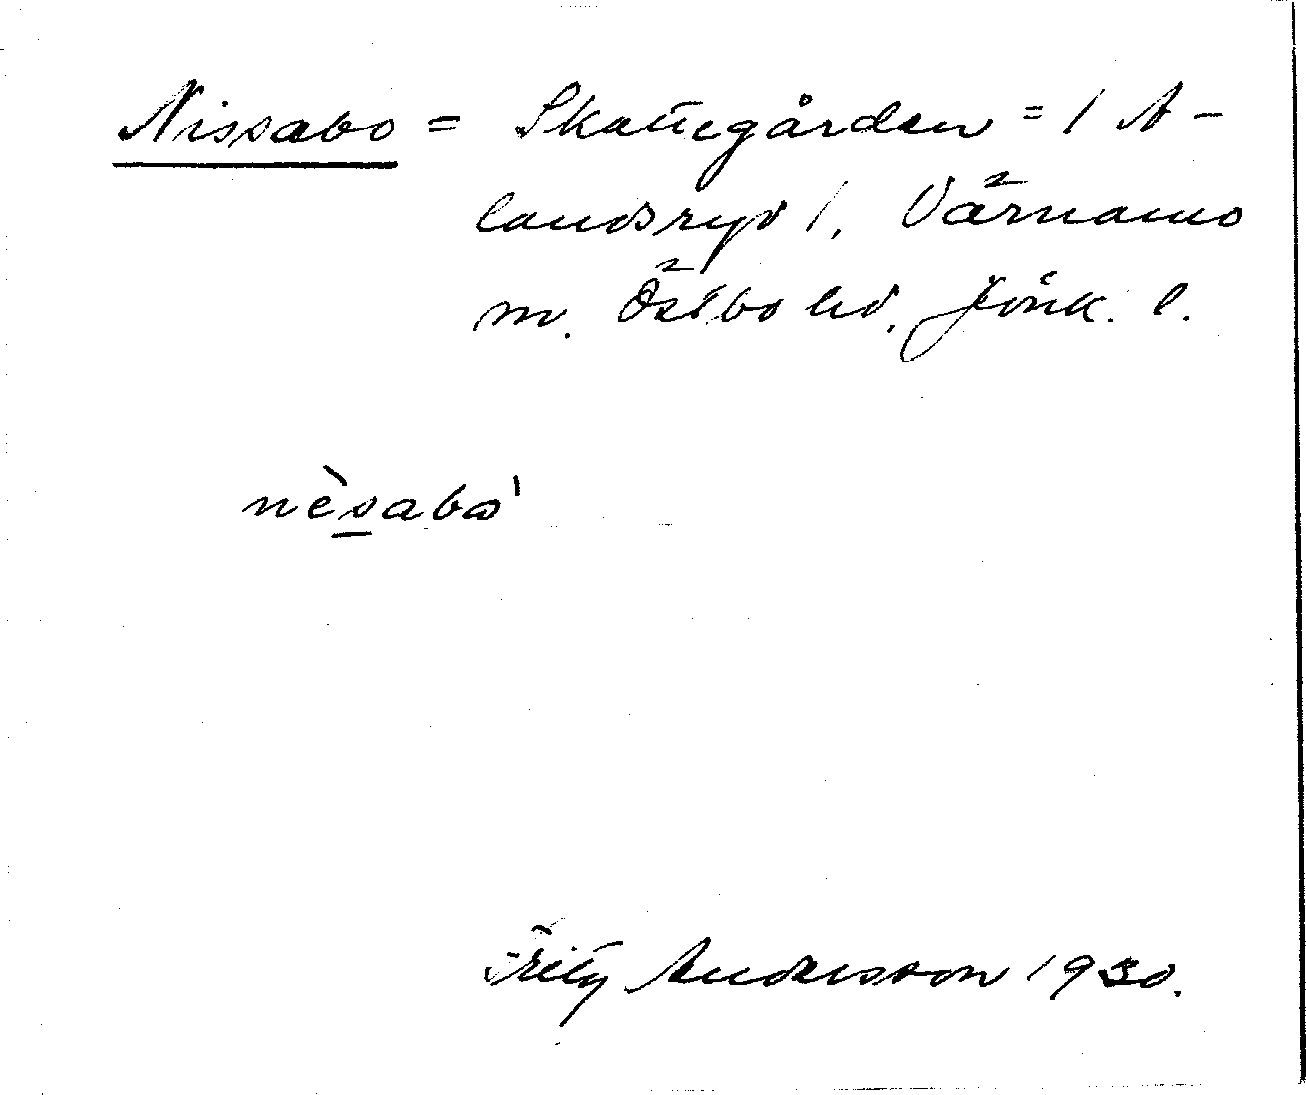 Nissabo = Skattegården = / A-
landsryd /, Värnamo
m. Östbo hd, Jönk. l.
nèsabo'
Fritz Andersson 1930.